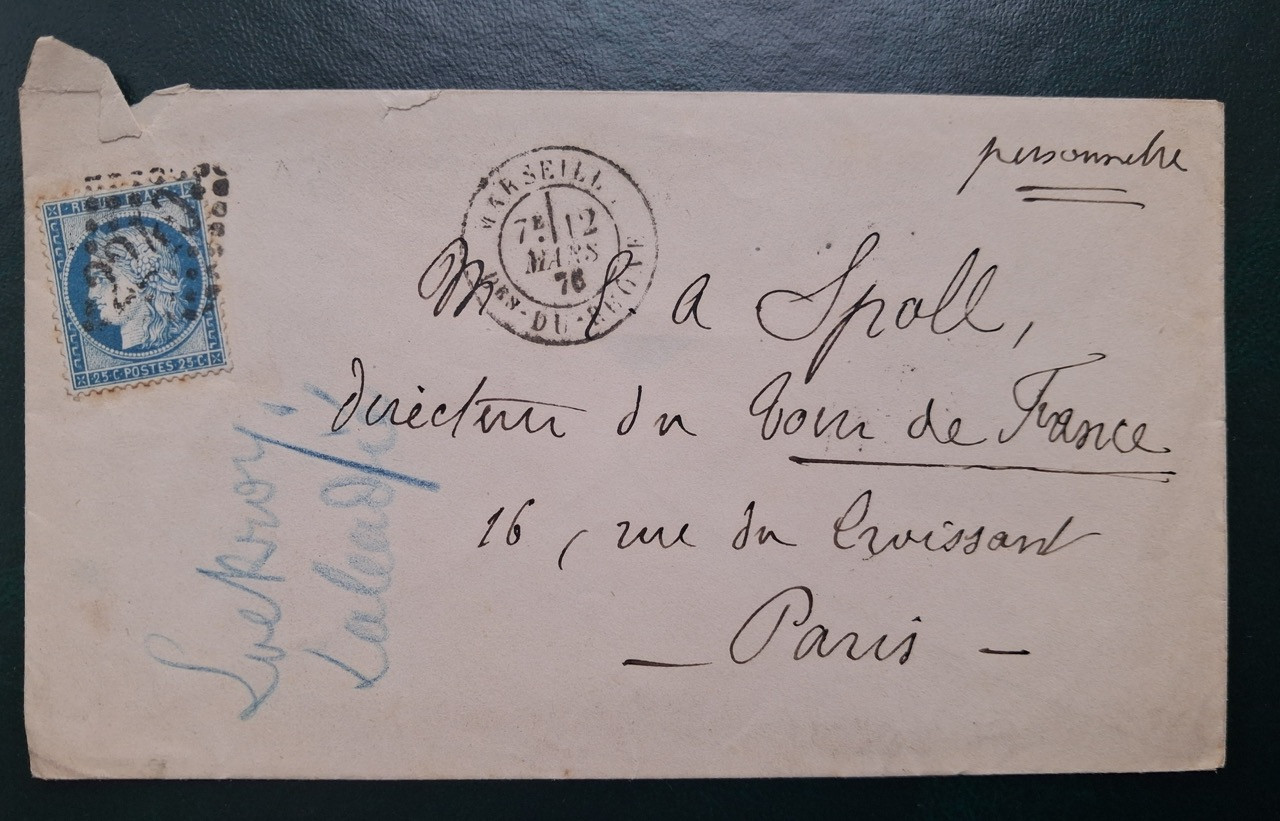 personnelle
REPUB FRANC
2240
25·C·POSTES·25·C
MARSEILLE
7E 12
MARS
76
BES-DU-RHONE
M E. A Spoll,
directeur du Tour de France
16, rue du Croissant
— Paris —